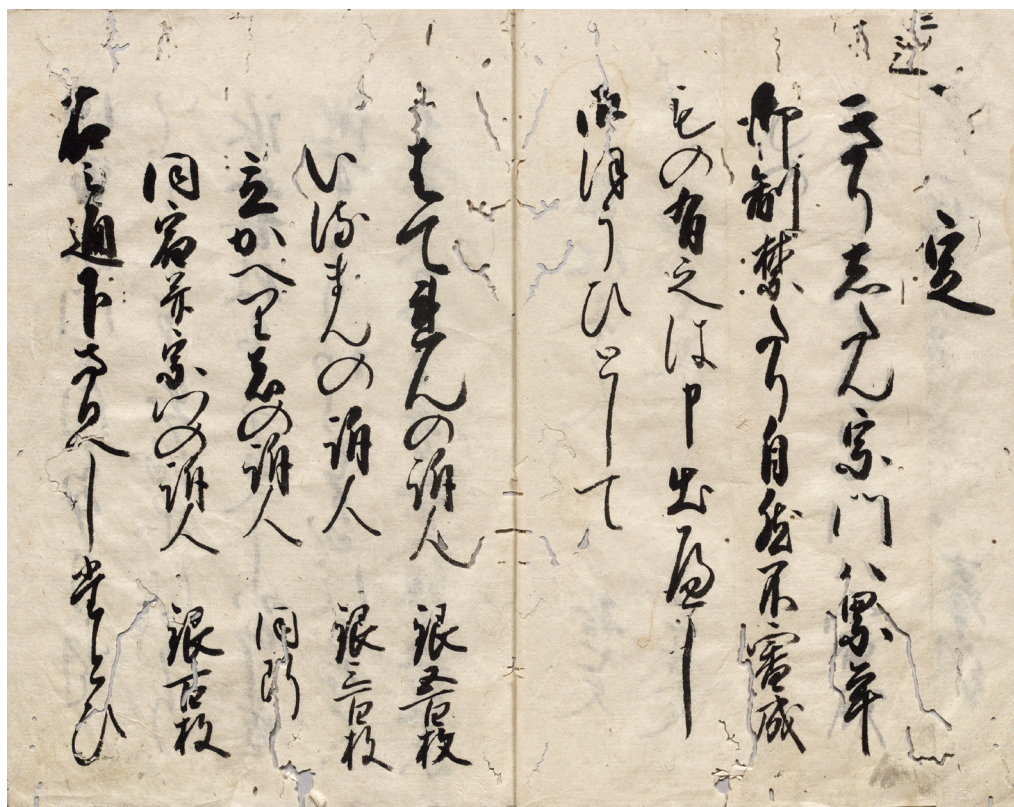 定
きりしたん宗門ハ累年
御制禁たり自然不審成
もの有之は申出へし
御ほうひとして
はてれんの訴人 銀五百枚
いるまんの訴人 銀三百枚
立かへり者の訴人 同断
同宿并宗門の訴人 銀百枚
右之通下さるへしたとひ